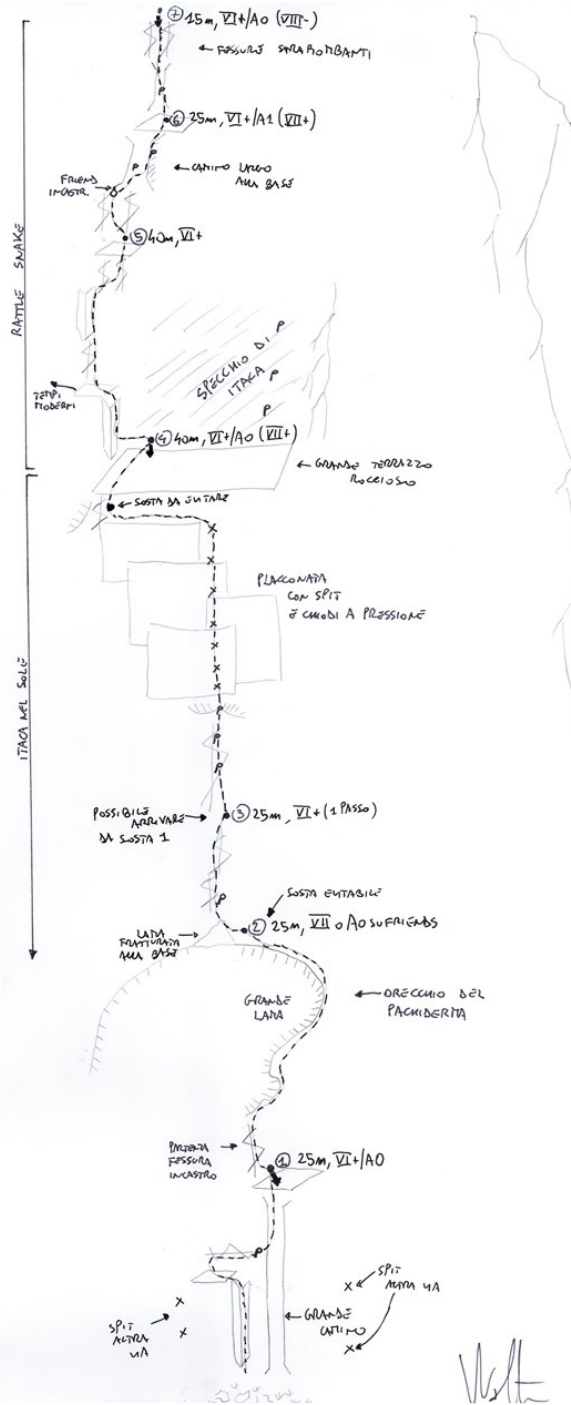 ⑦ 15m, VI+/A0 (VIII-)
← FESSURE STRAPIOMBANTI
P
⑥ 25m, VI+/A1 (VII+)
P
← CAMINO LARGO
ALLA BASE
P
FRIEND
INCASTR.
⑤ 40m, VI+
RATTLE SNAKE
SPECCHIO DI
ITACA
P
P
P
TEMPI
MODERNI
④ 40m, VI+/A0 (VII+)
← GRANDE TERRAZZO
ROCCIOSO
← SOSTA DA EVITARE
PLACCONATA
CON SPIT
E CHIODI A PRESSIONE
ITACA NEL SOLE
P
P
P
POSSIBILE →
ARRIVARE
DA SOSTA 1
③ 25m, VI+ (1 PASSO)
P
SOSTA EVITABILE
② 25m, VII o A0 SU FRIENDS
LAMA →
FRATTURATA
ALLA BASE
GRANDE
LAMA
← ORECCHIO DEL
PACHIDERMA
PARTENZA →
FESSURA
INCASTRO
① 25m, VI+/A0
P
← SPIT
ALTRA VIA
SPIT
ALTRA
VIA
← GRANDE
CAMINO